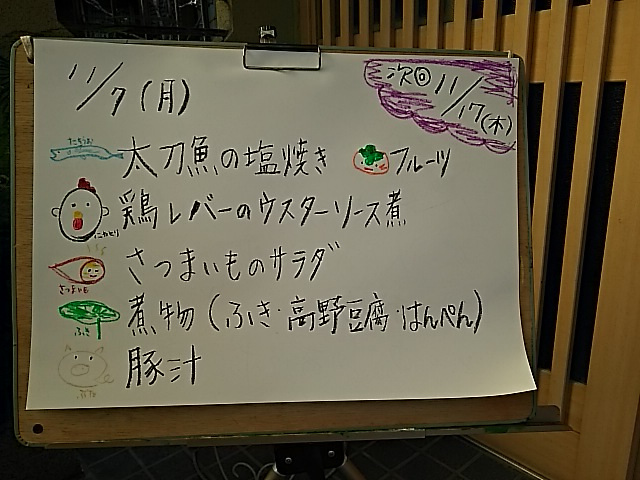 11/7(月)
次回 11/17(木)
たちうお
太刀魚の塩焼き
フルーツ
にわとり
鶏レバーのウスターソース煮
さつまいも
さつまいものサラダ
ふき
煮物(ふき・高野豆腐・はんぺん)
ぶた
豚汁